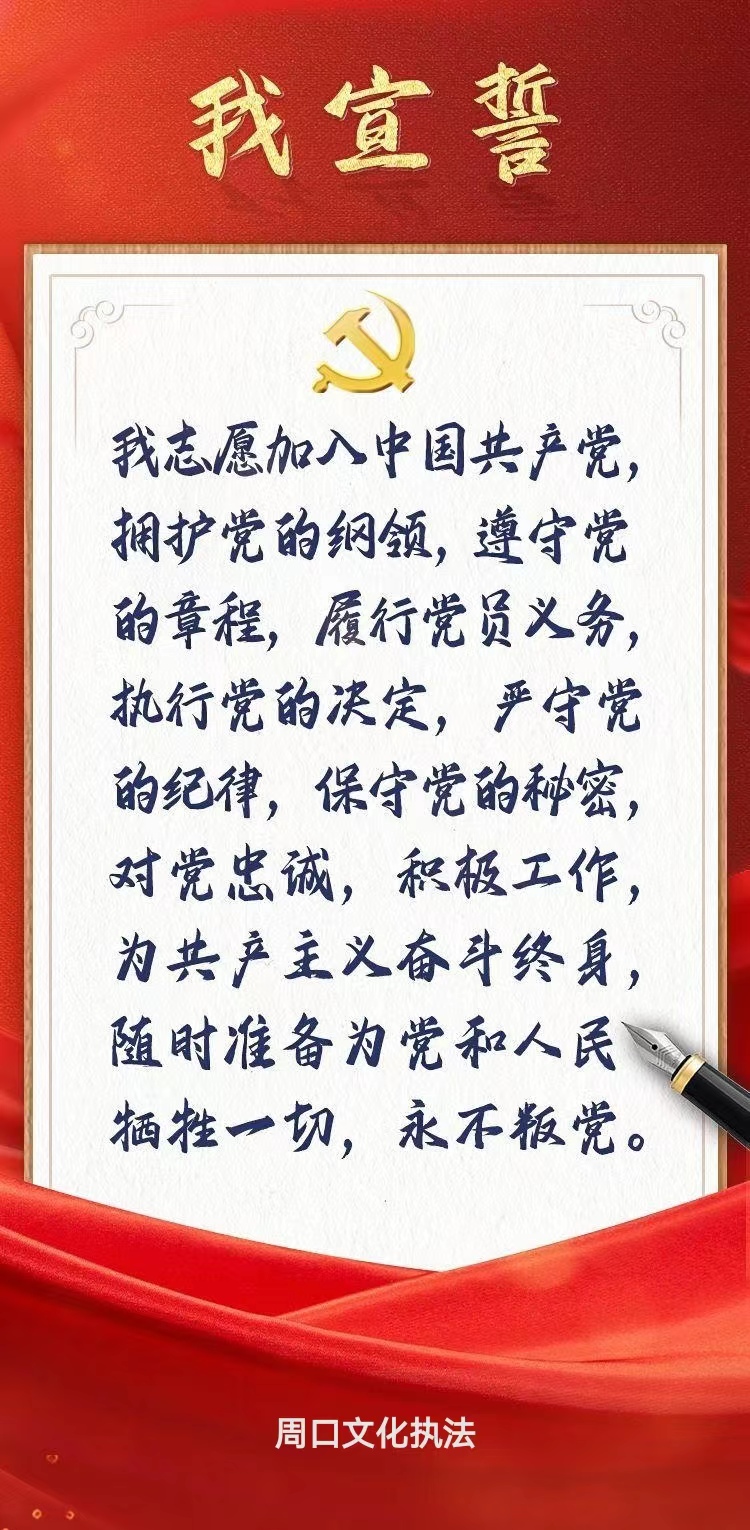 我宣誓
我志愿加入中国共产党，
拥护党的纲领，遵守党
的章程，履行党员义务，
执行党的决定，严守党
的纪律，保守党的秘密，
对党忠诚，积极工作，
为共产主义奋斗终身，
随时准备为党和人民
牺牲一切，永不叛党。
周口文化执法